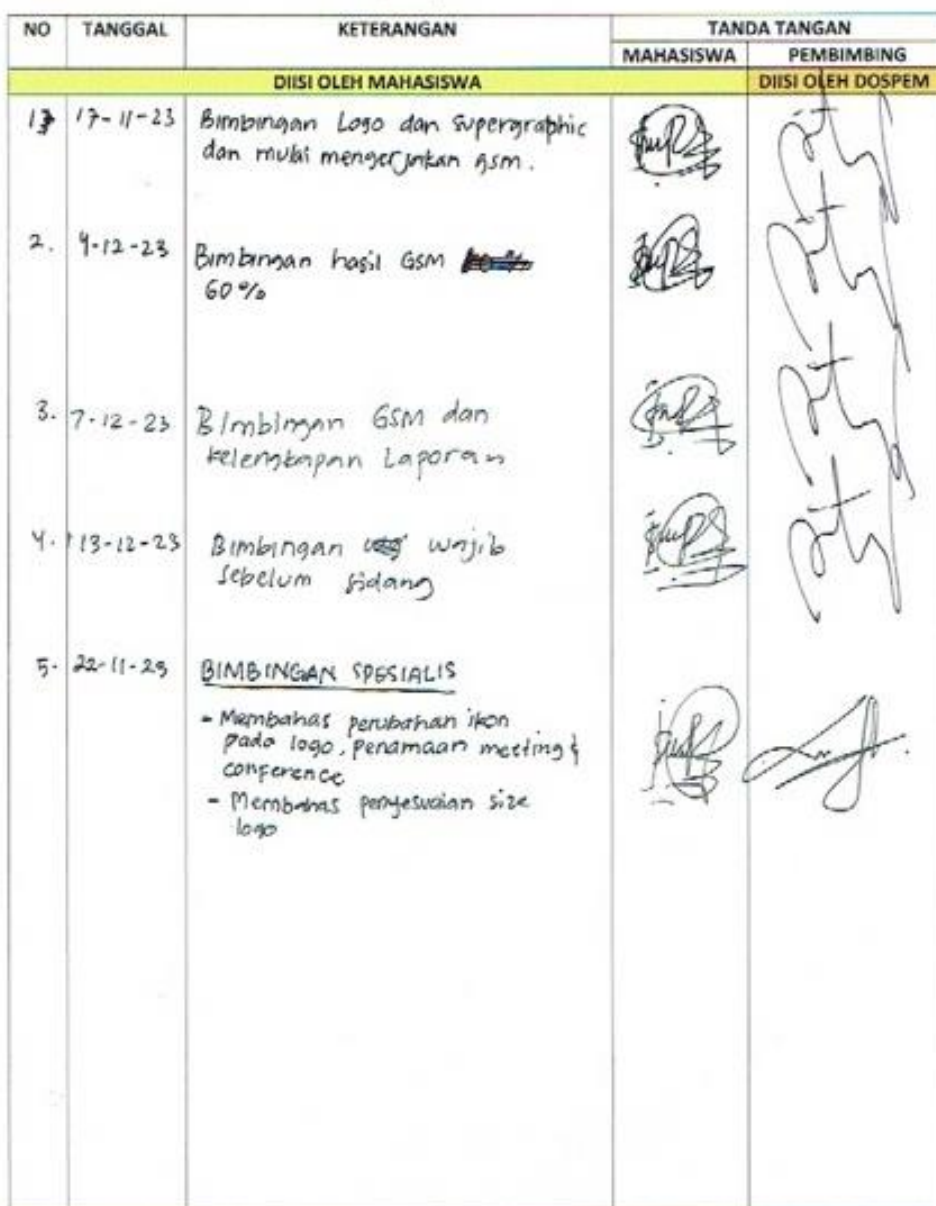 NO TANGGAL KETERANGAN TANDA TANGAN
MAHASISWA PEMBIMBING
DIISI OLEH MAHASISWA DIISI OLEH DOSPEM
1 17-11-23 Bimbingan Logo dan Supergraphic
dan mulai mengerjakan GSM.
2. 4-12-23 Bimbingan hasil GSM
60%
3. 7-12-23 Bimbingan GSM dan
kelengkapan Laporan
4. 13-12-23 Bimbingan wajib
sebelum sidang
5. 22-11-23 BIMBINGAN SPESIALIS
- Membahas perubahan ikon
pada logo, penamaan meeting &
conference
- Membahas penyesuaian size
logo